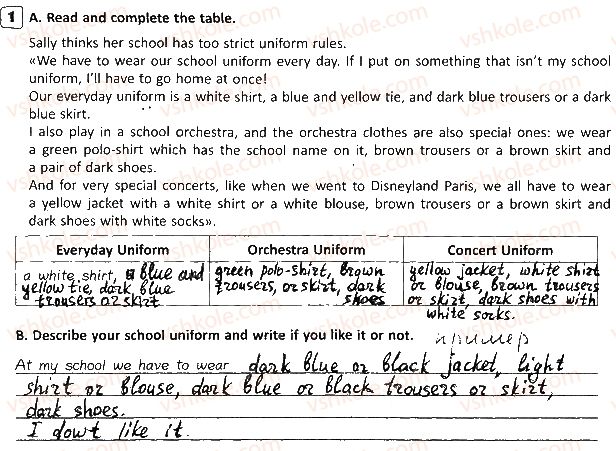 1 A. Read and complete the table.
Sally thinks her school has too strict uniform rules.
«We have to wear our school uniform every day. If I put on something that isn't my school
uniform, I'll have to go home at once!
Our everyday uniform is a white shirt, a blue and yellow tie, and dark blue trousers or a dark
blue skirt.
I also play in a school orchestra, and the orchestra clothes are also special ones: we wear
a green polo-shirt which has the school name on it, brown trousers or a brown skirt and
a pair of dark shoes.
And for very special concerts, like when we went to Disneyland Paris, we all have to wear
a yellow jacket with a white shirt or a white blouse, brown trousers or a brown skirt and
dark shoes with white socks».
Everyday Uniform Orchestra Uniform Concert Uniform
a white shirt, a blue and
yellow tie, dark blue
trousers or skirt
green polo-shirt, brown
trousers, or skirt, dark
shoes
yellow jacket, white shirt
or blouse, brown trousers
or skirt, dark shoes with
white socks.
B. Describe your school uniform and write if you like it or not. пример
At my school we have to wear dark blue or black jacket, light
shirt or blouse, dark blue or black trousers or skirt,
dark shoes.
I dowt like it.